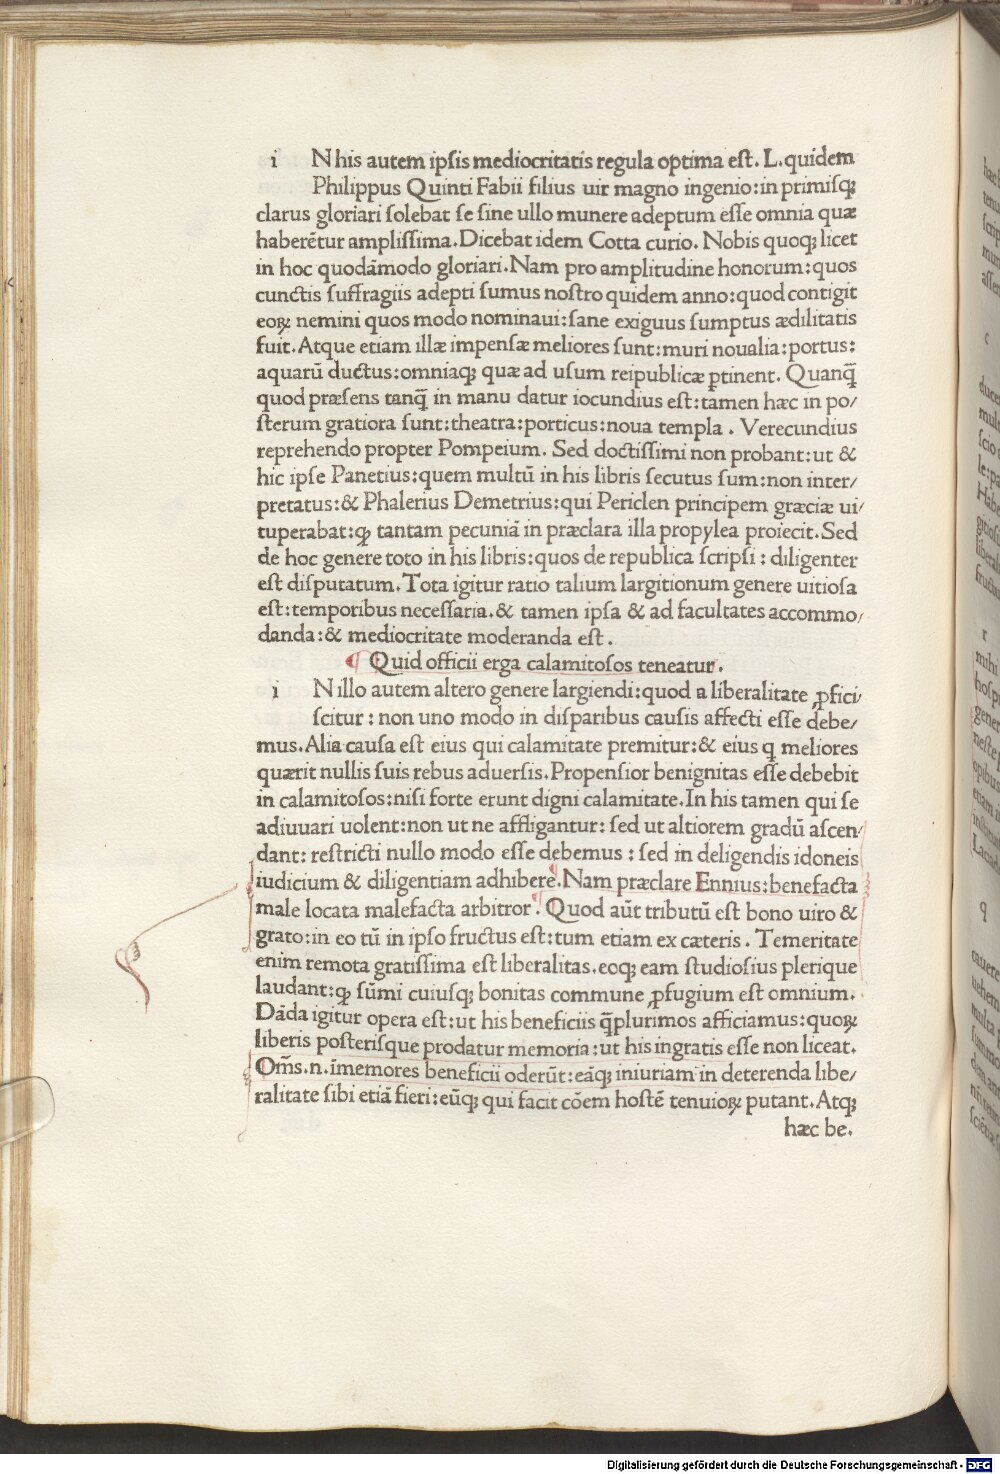 i N his autem ipſis mediocritatis regula optima eſt. L. quidem
Philippus Quinti Fabii filius uir magno ingenio: in primiſqꝫ
clarus gloriari ſolebat ſe ſine ullo munere adeptum eſſe omnia quæ
haberẽtur ampliſſima. Dicebat idem Cotta curio. Nobis quoqꝫ licet
in hoc quodãmodo gloriari. Nam pro amplitudine honorum: quos
cunctis ſuffragiis adepti ſumus noſtro quidem anno: quod contigit
eoꝝ nemini quos modo nominaui: ſane exiguus ſumptus ædilitatis
fuit. Atque etiam illæ impenſæ meliores ſunt: muri noualia: portus:
aquarũ ductus: omniaqꝫ quæ ad uſum reipublicæ ꝑtinent. Quanq̃
quod præſens tanq̃ in manu datur iocundius eſt: tamen hæc in po/
ſterum gratiora ſunt: theatra: porticus: noua templa. Verecundius
reprehendo propter Pompeium. Sed doctiſſimi non probant: ut &
hic ipſe Panetius: quem multũ in his libris ſecutus ſum: non inter/
pretatus: & Phalerius Demetrius: qui Periclen principem græciæ ui/
tuperabat: ꝙ tantam pecuniã in præclara illa propylea proiecit. Sed
de hoc genere toto in his libris: quos de republica ſcripſi: diligenter
eſt diſputatum. Tota igitur ratio talium largitionum genere uitioſa
eſt: temporibus neceſſaria. & tamen ipſa & ad facultates accommo/
danda: & mediocritate moderanda eſt.
¶ Quid officii erga calamitoſos teneatur.
i N illo autem altero genere largiendi: quod a liberalitate ꝓfici/
ſcitur: non uno modo in diſparibus cauſis affecti eſſe debe/
mus. Alia cauſa eſt eius qui calamitate premitur: & eius q meliores
quærit nullis ſuis rebus aduerſis. Propenſior benignitas eſſe debebit
in calamitoſos: niſi forte erunt digni calamitate. In his tamen qui ſe
adiuuari uolent: non ut ne affligantur: ſed ut altiorem gradũ aſcen/
dant: reſtricti nullo modo eſſe debemus: ſed in deligendis idoneis
iudicium & diligentiam adhibere. Nam præclare Ennius: benefacta
male locata malefacta arbitror. Quod aũt tributũ eſt bono uiro &
grato: in eo tũ in ipſo fructus eſt: tum etiam ex cæteris. Temeritate
enim remota gratiſſima eſt liberalitas. eoqꝫ eam ſtudioſius plerique
laudant: ꝙ ſũmi cuiuſqꝫ bonitas commune ꝓfugium eſt omnium.
Dãda igitur opera eſt: ut his beneficiis q̃plurimos afficiamus: quoꝝ
liberis poſteriſque prodatur memoria: ut his ingratis eſſe non liceat.
Om̃s. n. ĩmemores beneficii oderũt: eãqꝫ iniuriam in deterenda libe/
ralitate ſibi etiã fieri: eũqꝫ qui facit cõem hoſtẽ tenuioꝝ putant. Atqꝫ
hæc be.
Digitalisierung gefördert durch die Deutsche Forschungsgemeinschaft - DFG